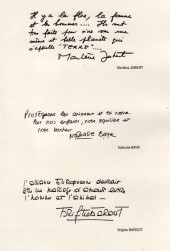 Il y a la flore, la faune
et les hommes.... Ils ont
tout faits pour vivre sur une
même et belle planète qui
s'appelle "TERRE"....
Marlène Jobert
Marlène JOBERT
Protégeons les animaux et la nature
pour nos enfants, notre équilibre et
notre bonheur.
NATHALIE BAYE
Nathalie BAYE
L'union européenne devrait
être un mariage d'amour entre
l'homme et l'animal.
Brigitte BARDOT
Brigitte BARDOT